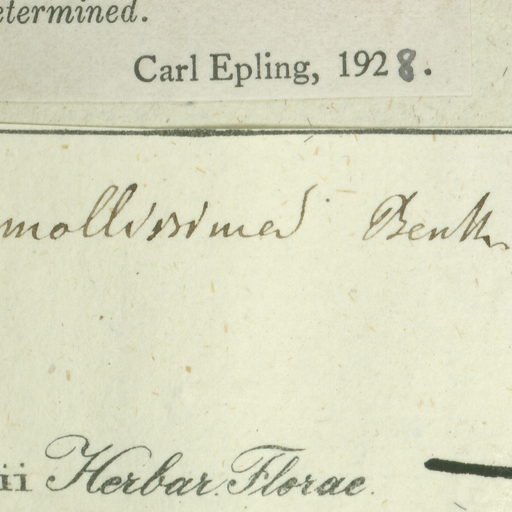 etermined.
Carl Epling, 1928.
mollissima Benth
ii Herbar. Florae